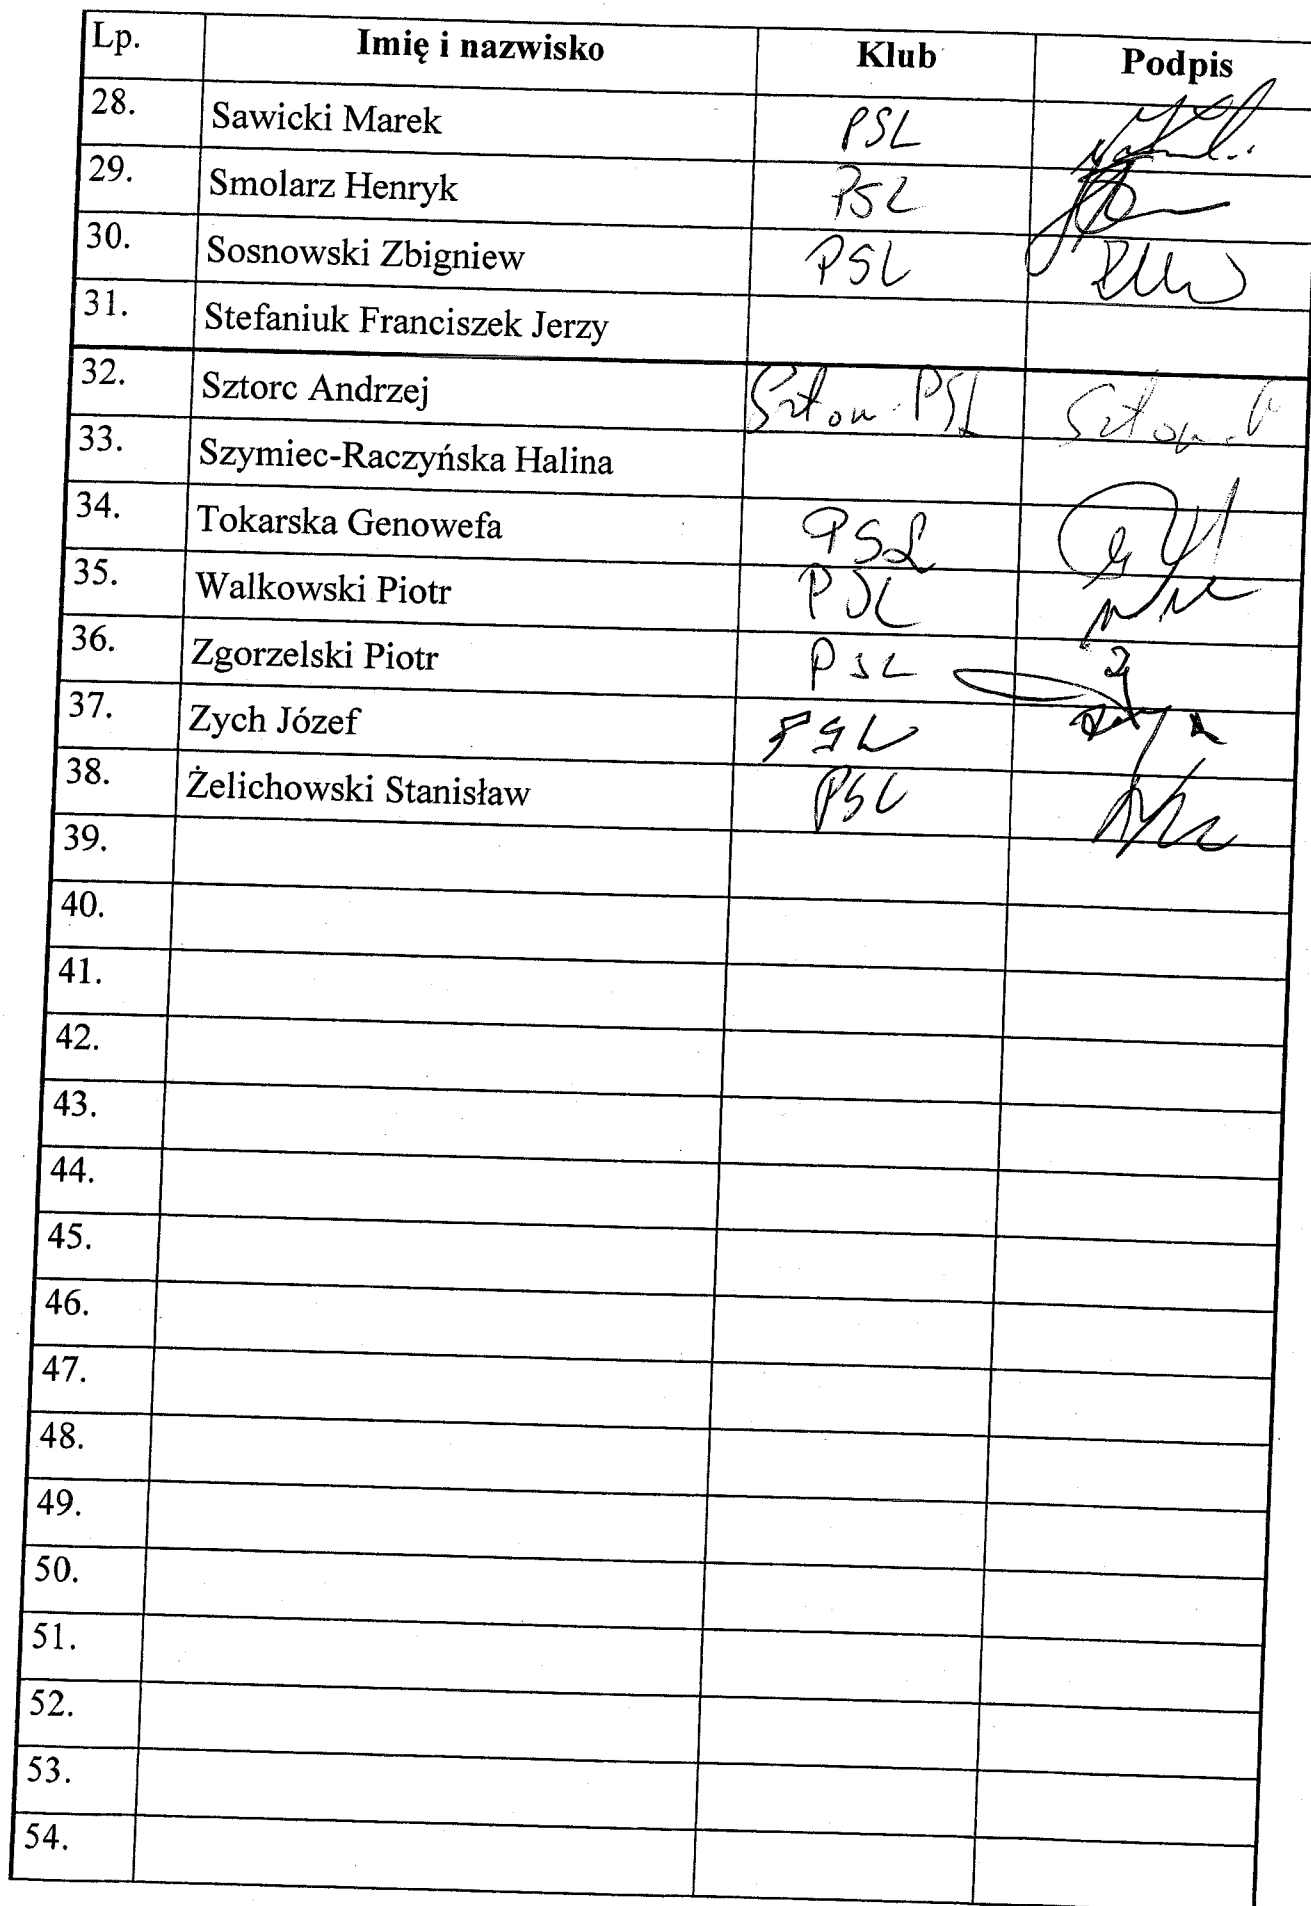 Lp. Imię i nazwisko Klub Podpis
28. Sawicki Marek PSL
29. Smolarz Henryk PSL
30. Sosnowski Zbigniew PSL
31. Stefaniuk Franciszek Jerzy
32. Sztorc Andrzej PSL
33. Szymiec-Raczyńska Halina
34. Tokarska Genowefa PSL
35. Walkowski Piotr PSL
36. Zgorzelski Piotr PSL
37. Zych Józef PSL
38. Żelichowski Stanisław PSL
39.
40.
41.
42.
43.
44.
45.
46.
47.
48.
49.
50.
51.
52.
53.
54.